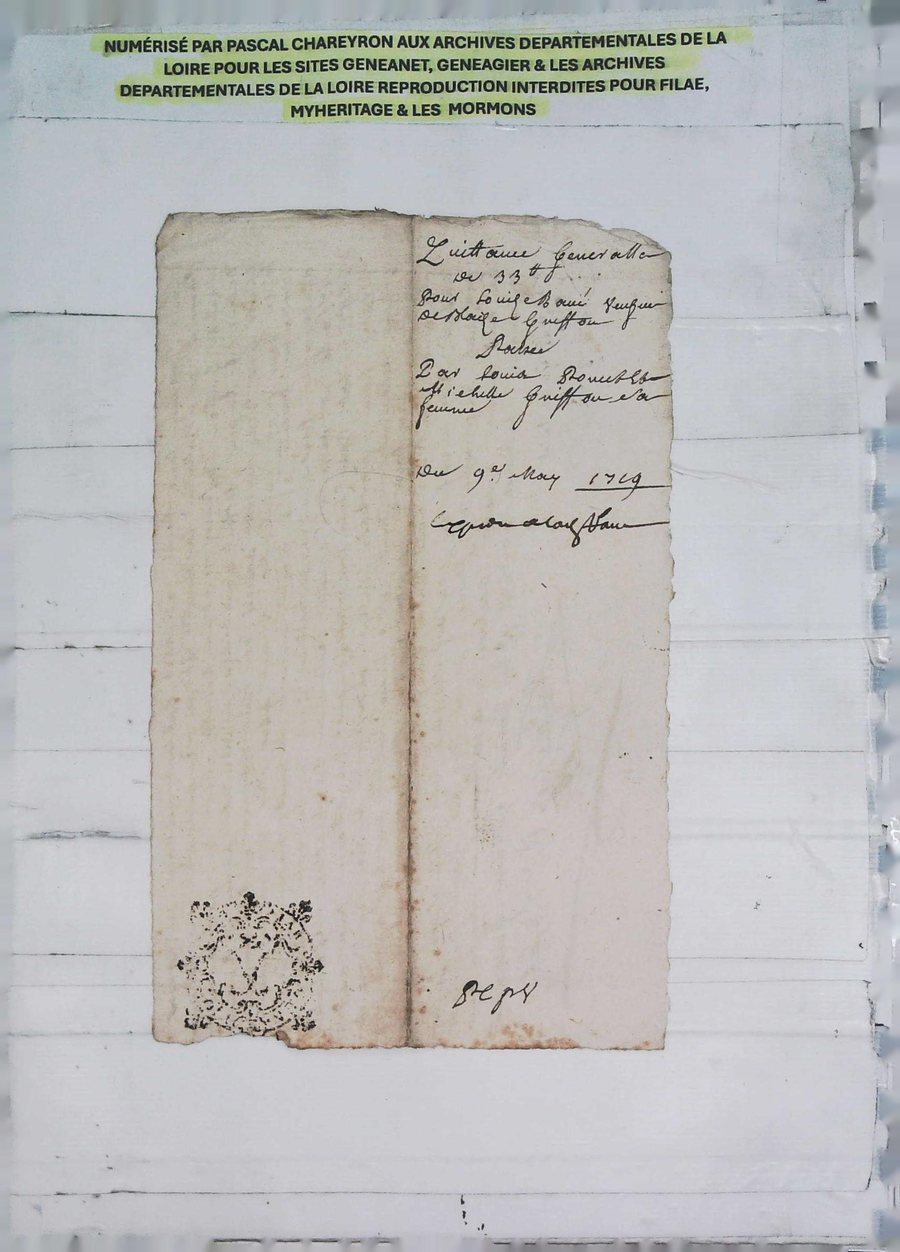 NUMÉRISÉ PAR PASCAL CHAREYRON AUX ARCHIVES DEPARTEMENTALES DE LA
LOIRE POUR LES SITES GENEANET, GENEAGIER & LES ARCHIVES
DEPARTEMENTALES DE LA LOIRE REPRODUCTION INTERDITES POUR FILAE,
MYHERITAGE & LES MORMONS
Quittance Generalle
de 33tt
Pour Louise
de Blaize Griffon
Passée
Par Louis
Michelle Griffon sa
femme
Du 9e May 1719